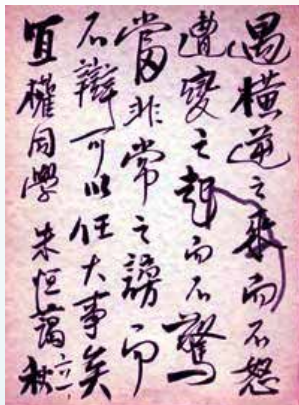 遇橫逆之來而不怒
遭變之起而不驚
當非常之謗而
不辯可以任大事矣
宜權同學 朱恒藹 六一、秋